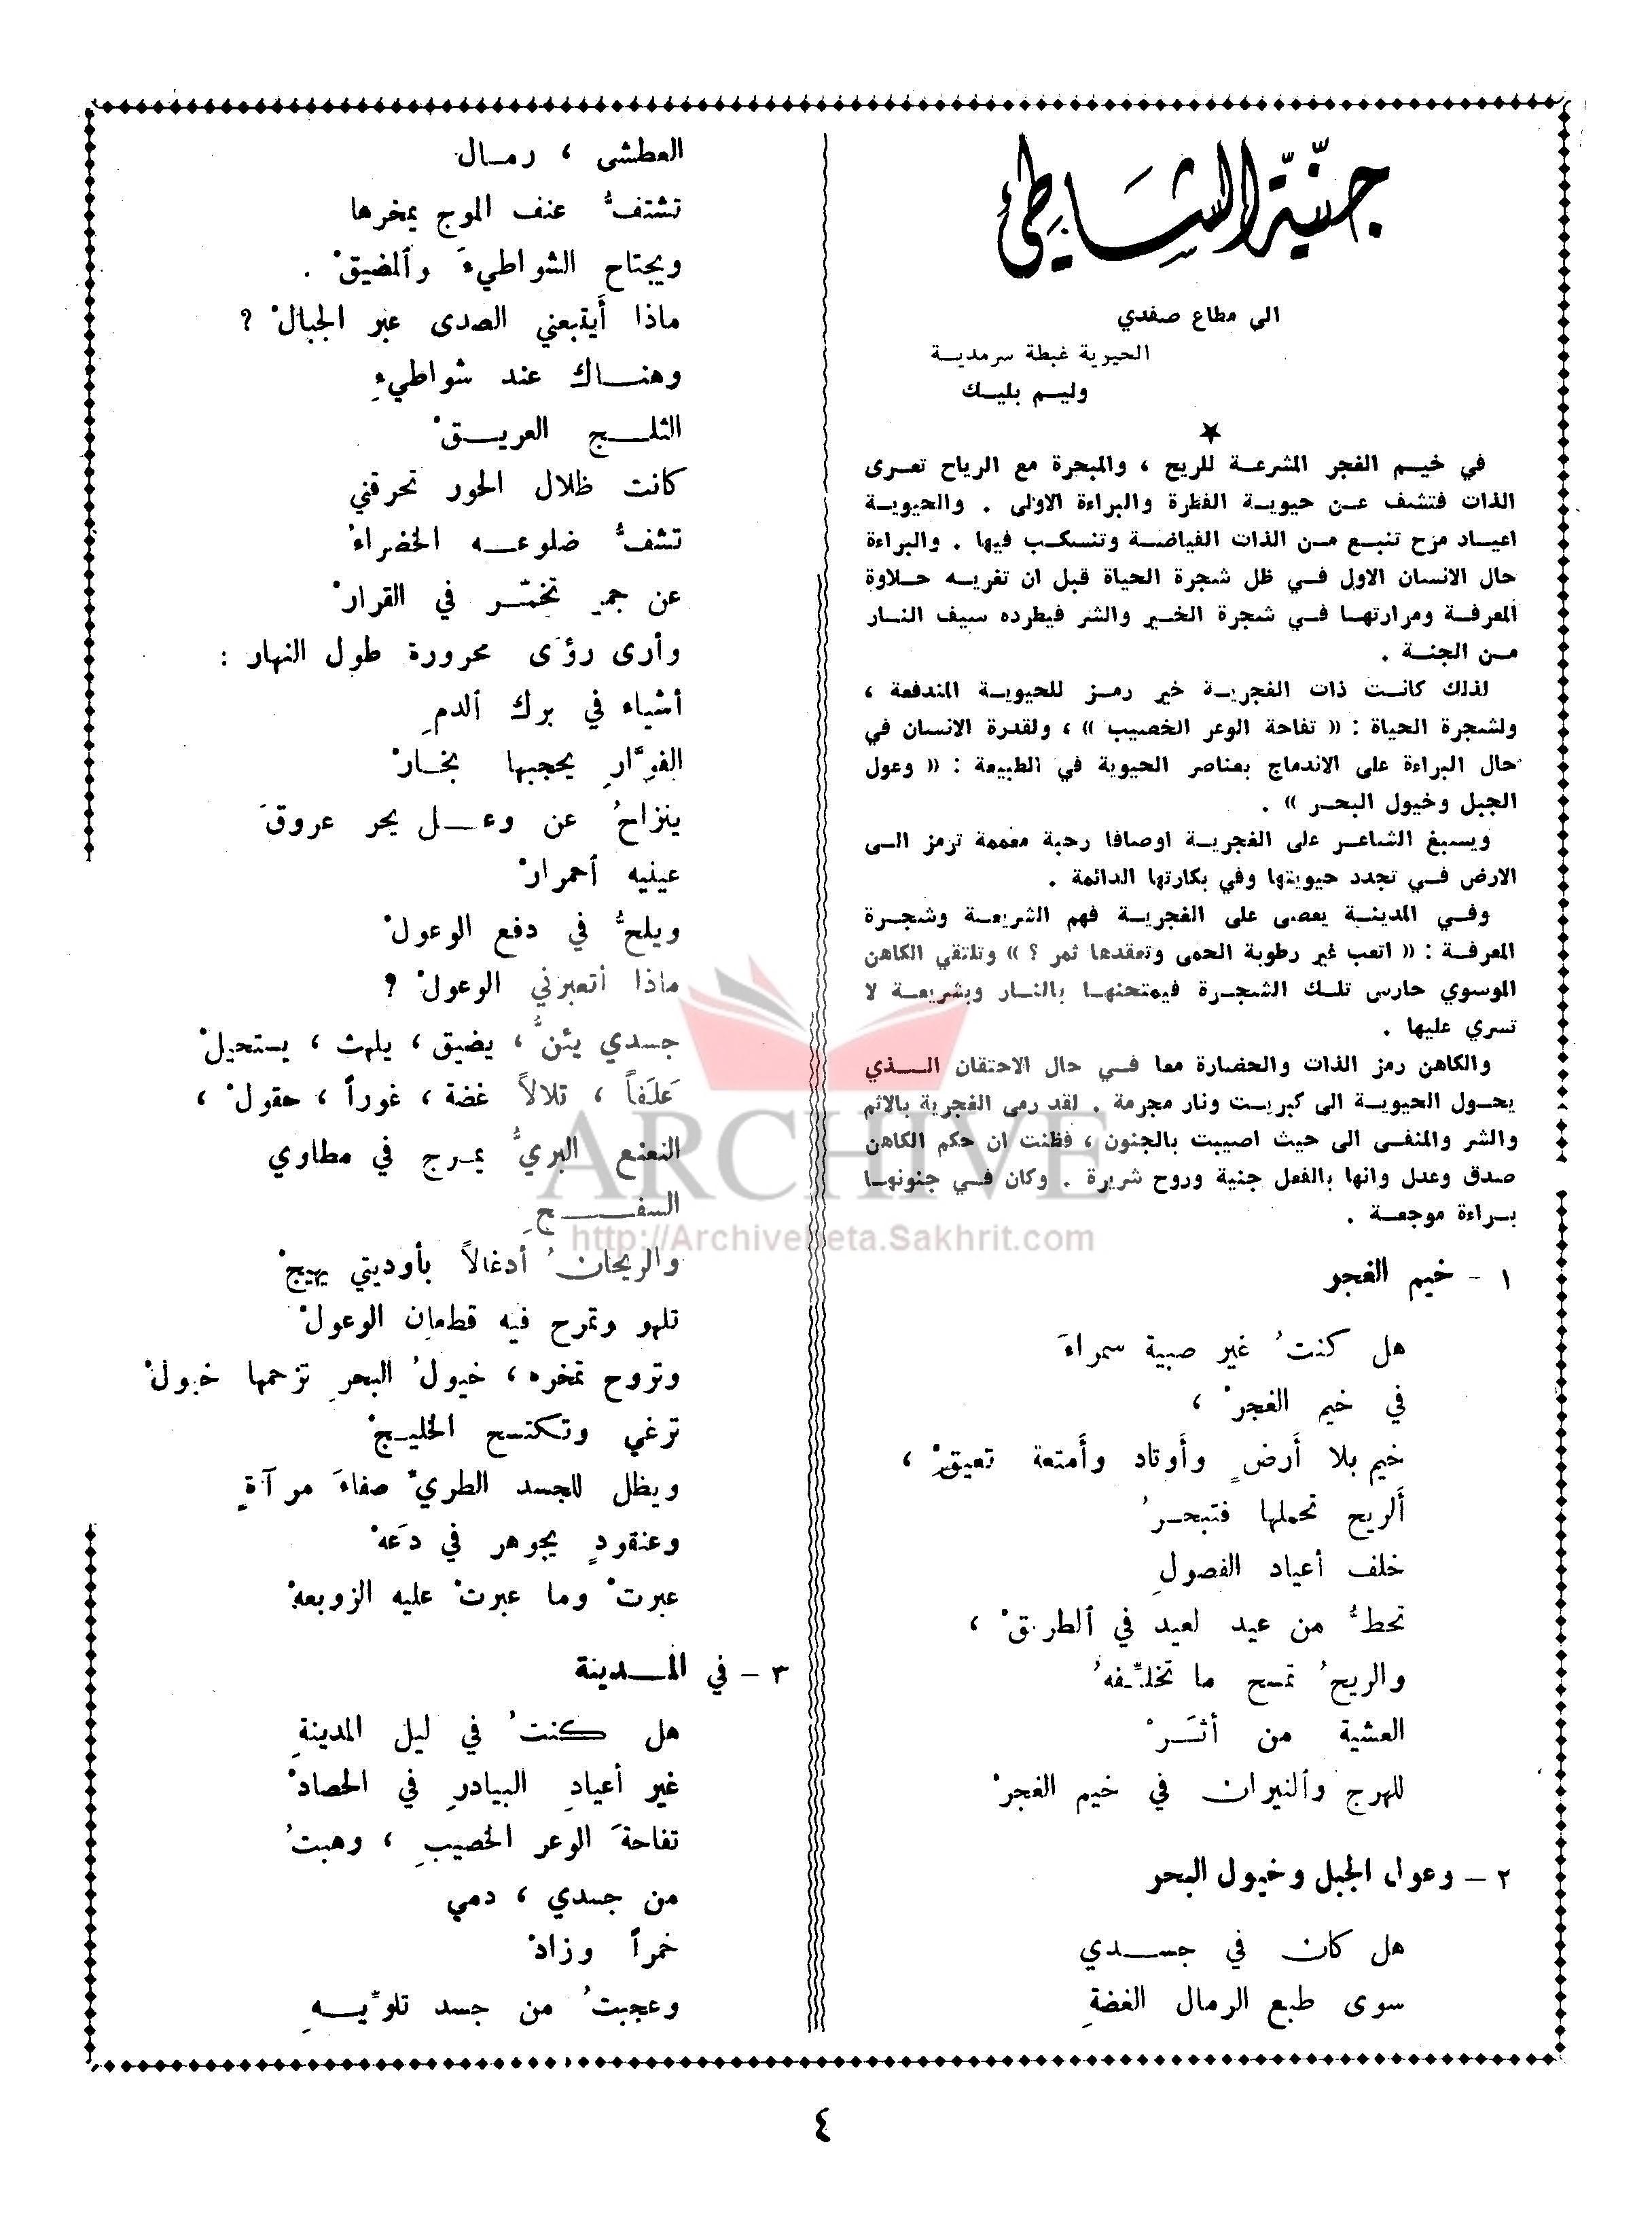 جنّيّة الشاطئ
الى مطاع صفدي
الحيوية غبطة سرمدية
وليم بليك
في خيم الفجر المشرعة للريح ، والمبحرة مع الرياح تعرى
الذات فتشف عن حيوية الفطرة والبراءة الاولى . والحيوية
اعياد مرح تنبع من الذات الفياضة وتنسكب فيها . والبراءة
حال الانسان الاول في ظل شجرة الحياة قبل ان تغريه حلاوة
المعرفة ومرارتها في شجرة الخير والشر فيطرده سيف النار
من الجنة .
لذلك كانت ذات الفجرية خير رمز للحيوية المندفعة ،
ولشجرة الحياة : (( تفاحة الوعر الخصيب )) ، ولقدرة الانسان في
حال البراءة على الاندماج بعناصر الحيوية في الطبيعة : (( وعول
الجبل وخيول البحر )) .
ويسبغ الشاعر على الفجرية اوصافا رحبة معممة ترمز الى
الارض في تجدد حيويتها وفي بكارتها الدائمة .
وفي المدينة يعصى على الفجرية فهم الشريعة وشجرة
المعرفة : (( اتعب غير رطوبة الحمى وتعقدها ثمر ؟ )) وتلتقي الكاهن
الموسوي حارس تلك الشجرة فيمتحنها بالنار وبشريعة لا
تسري عليها .
والكاهن رمز الذات والحضارة معا في حال الاحتقان الذي
يحول الحيوية الى كبريت ونار مجرمة . لقد رمى الفجرية بالاثم
والشر والمنفى الى حيث اصيبت بالجنون ، فظنت ان حكم الكاهن
صدق وعدل وانها بالفعل جنية وروح شريرة . وكان في جنونها
براءة موجعة .
١ - خيم الفجر
هل كنتُ غير صبية سمراءَ
في خيم الفجرْ ،
خيم بلا أَرضٍ وأَوتاد وأَمتعة تعيقْ ،
أَلريح تحملها فتبحرُ
خلف أعياد الفصولِ
تحطُّ من عيد لعيد في ألطريقْ ،
والريحُ تمسح ما تخلِّفهُ
العشية من أثَرْ
للهرج وألنيران في خيم الفجرْ
٢ - وعول الجبل وخيول البحر
هل كان في جسدي
سوى طبع الرمال الغضةِ
العطشى ، رمال
تشتفُّ عنف الموج يمخرها
ويجتاح الشواطيءَ وألمضيقْ .
ماذا أَيتبعني الصدى عبر الجبالْ ؟
وهناك عند شواطيءِ
الثلج العريقْ
كانت ظلال الحور تحرقني
تشفُّ ضلوعه الخضراءُ
عن جمرٍ تخمّر في القرارْ
وأرى رؤى محرورة طول النهار :
أشياء في برك ألدمِ
الفوَّارِ يحجبها بخارْ
ينزاحُ عن وعل يحر عروقَ
عينيه أحمرارْ
ويلحُّ في دفع الوعولْ
ماذا أتعبرني الوعولْ ؟
جسدي يئنُّ ، يضيق ، يلهث ، يستحيلْ
عَلَفاً ، تلالاً غضة ، غوراً ، حقولْ ،
النعنع البريُّ يمرج في مطاوي
السفحِ
والريحانُ أدغالاً بأوديتي يهيجْ
تلهو وتمرح فيه قطعان الوعولْ
وتروح تمخره ، خيولُ البحرِ تزحمها خيولْ
ترغي وتكتسح الخليجْ
ويظل للجسد الطريّ صفاءَ مرآةٍ
وعنقودٍ يجوهر في دَعهْ
عبرتْ وما عبرتْ عليه الزوبعهْ
٣ - في المدينة
هل كنتُ في ليل المدينةِ
غير أعيادِ البيادرِ في الحصادْ
تفاحةَ الوعر الخصيبِ ، وهبتُ
من جسدي ، دمي
خمراً وزادْ
وعجبتُ من جسد تلوِّيهِ
٤
ARCHIVE
http://ArchiveBeta.Sakhrit.com